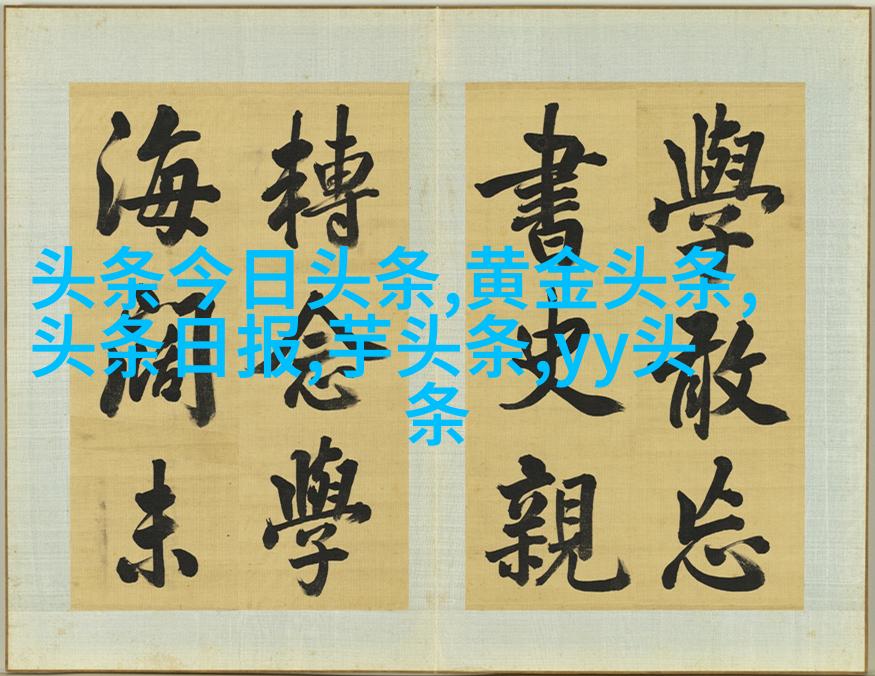 學敢忘
書史親
轉念學
海闊未
头条今日头条,黄金头条,
头条日报,芋头条,yy头
条